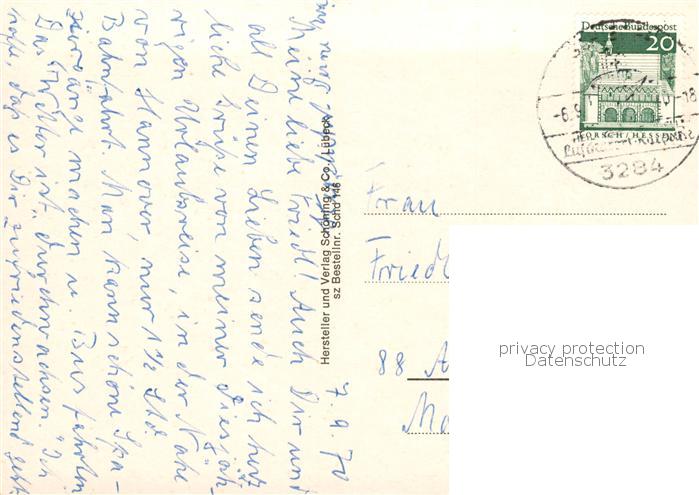 7.9.70
Meine liebe Friedl! Auch Dir und
all Deinen Lieben sende ich herz-
liche Grüße von meiner diesjäh-
rigen Urlaubsreise, in der Nähe
von Hannover, nur 1½ Std.
Bahnfahrt. Man kann schöne Spa-
ziergänge machen u. Bus fahrten
Das Wetter ist "durchwachsen." Ich
hoffe, daß es Dir zufriedenstellend geht
Hersteller und Verlag Schöning & Co., Lübeck
sz Bestellnr. Schd 146
Deutsche Bundespost
20
LORSCH/HESSEN
3284
Frau
Friedl
88 A
privacy protection
Datenschutz